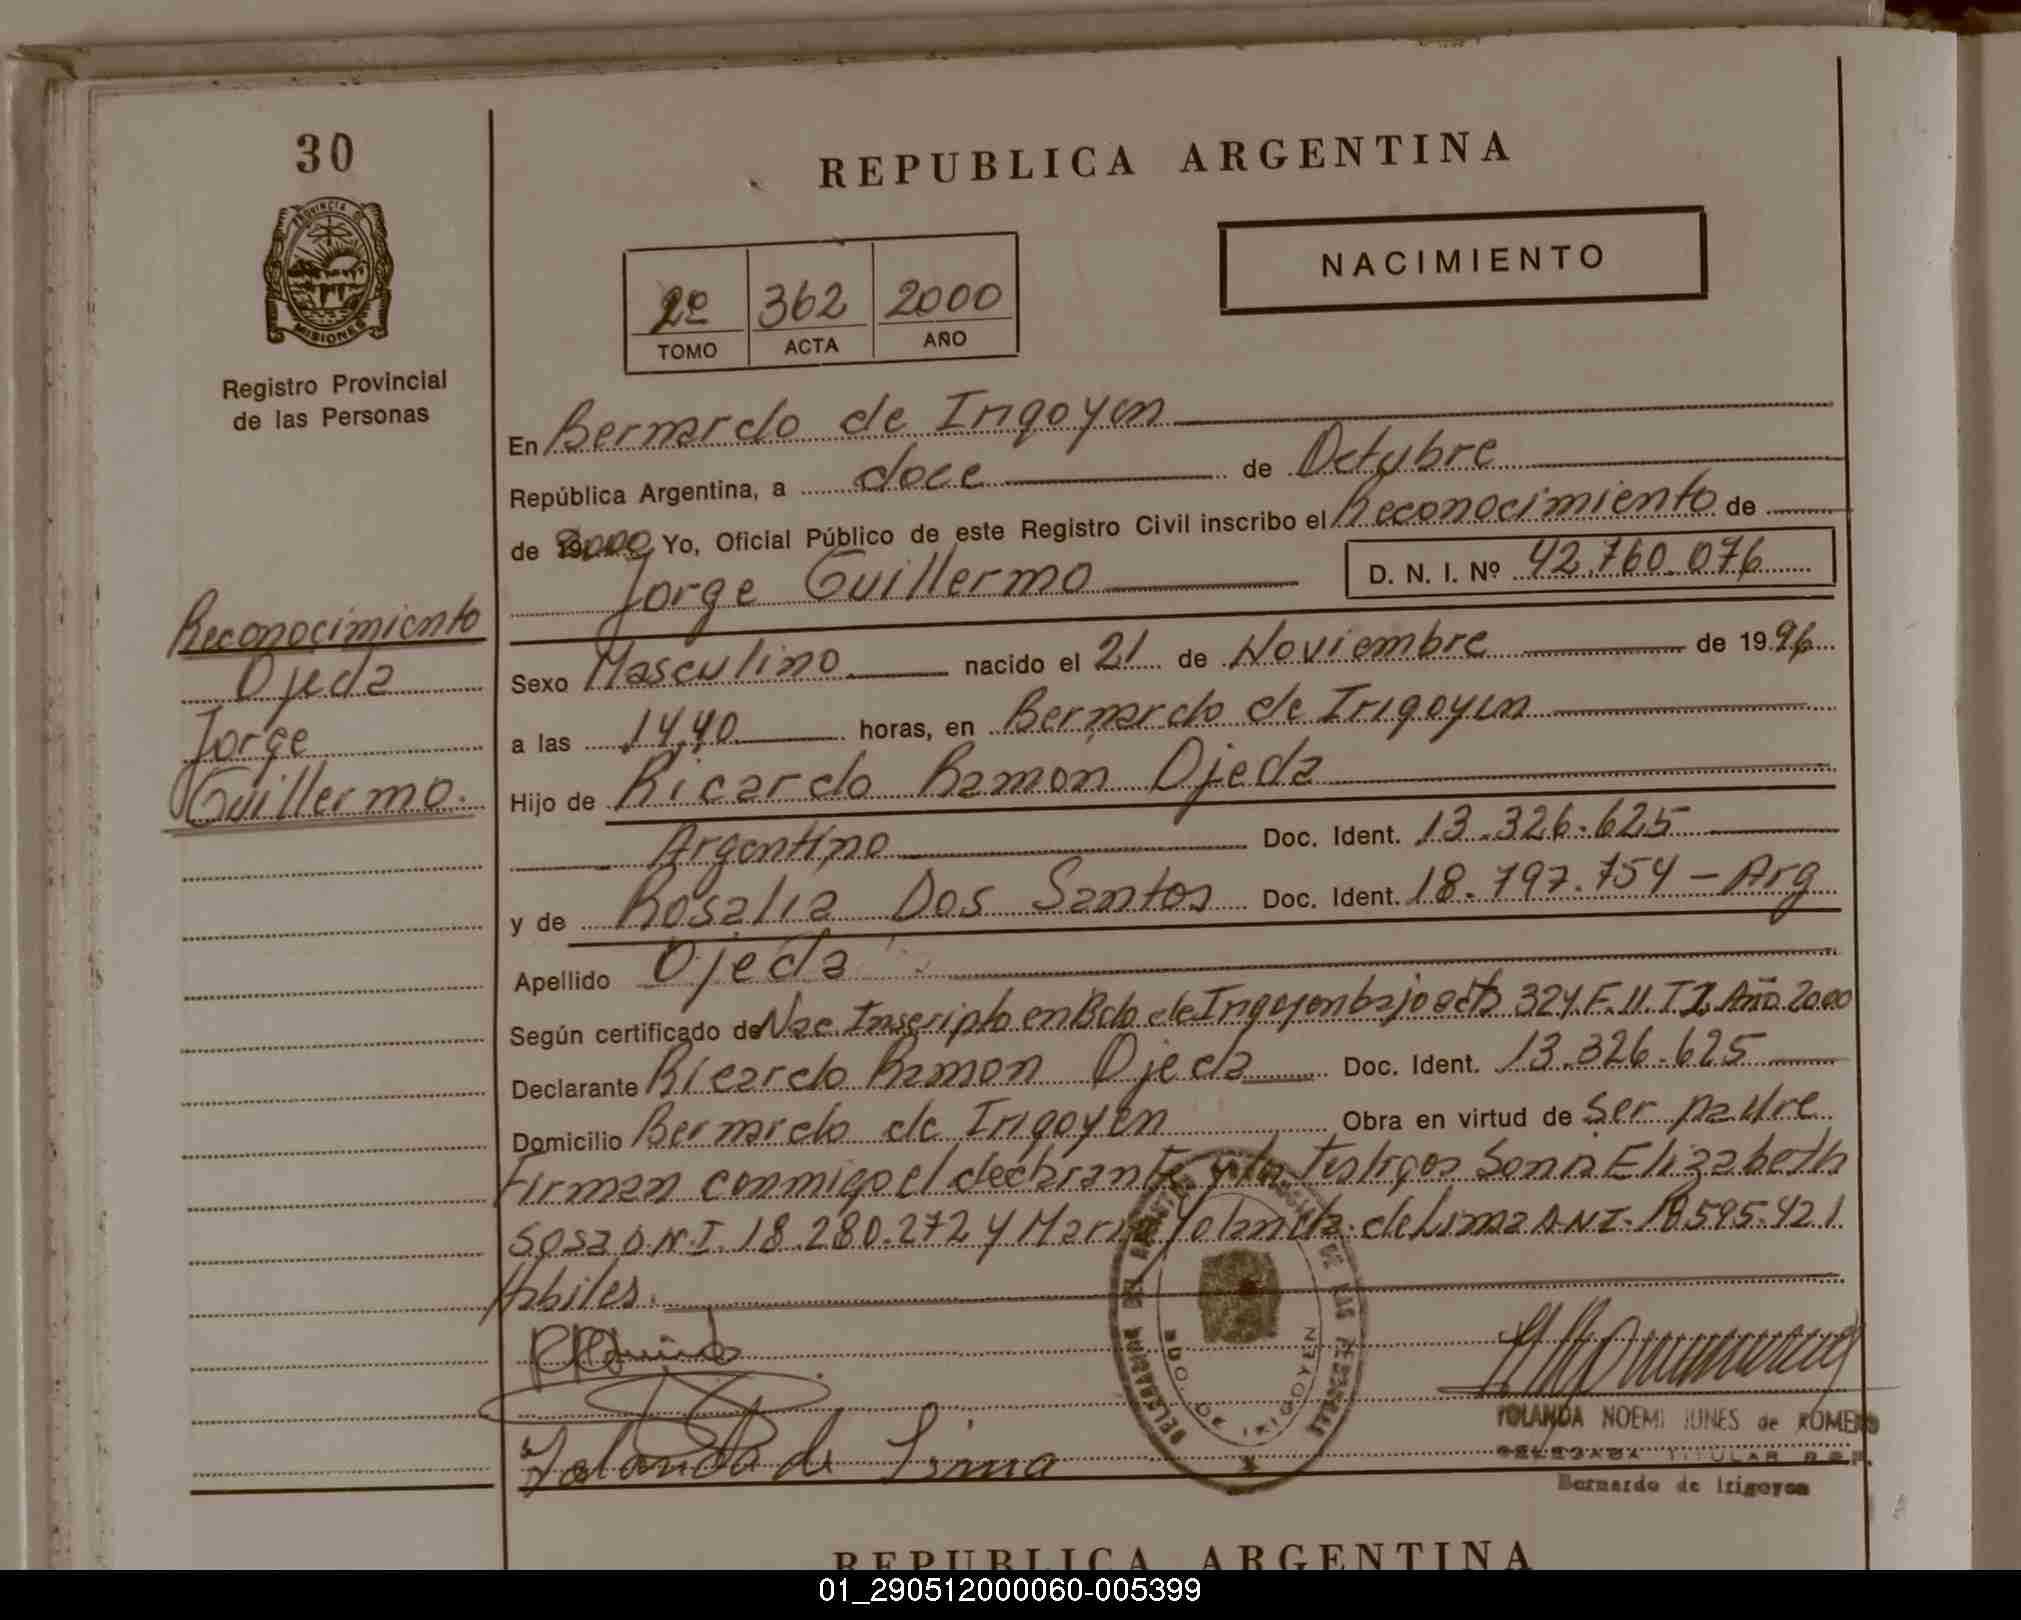 30
PROVINCIA DE
MISIONES
Registro Provincial
de las Personas
Reconocimiento
Ojeda
Jorge
Guillermo.
REPUBLICA ARGENTINA
NACIMIENTO
2º 362 2000
TOMO ACTA AÑO
En Bernardo de Irigoyen
República Argentina, a doce de Octubre
de 2000 Yo, Oficial Público de este Registro Civil inscribo el Reconocimiento de
Jorge Guillermo D. N. I. Nº 42.760.076
Sexo Masculino nacido el 21 de Noviembre de 1996
a las 14,40 horas, en Bernardo de Irigoyen
Hijo de Ricardo Ramón Ojeda
Argentino Doc. Ident. 13.326.625
y de Rosalia Dos Santos Doc. Ident. 18.797.754 - Arg
Apellido Ojeda
Según certificado de Nac Inscripto en Bdo de Irigoyen bajo acta 324.F.11.T2. Año 2000
Declarante Ricardo Ramon Ojeda Doc. Ident. 13.326.625
Domicilio Bernardo de Irigoyen Obra en virtud de ser padre
Firman conmigo el declarante y los Testigos Sonia Elizabeth
Sosa D.N.I. 18.280.272 y Maria Yolanda de Lima D.N.I. 18.595.421
Habiles.
BDO. DE IRIGOYEN
Yolanda de Lima
YOLANDA NOEMI de ROMERO
DELEGADA TITULAR R.P.P.
Bernardo de Irigoyen
REPUBLICA ARGENTINA
01_290512000060-005399